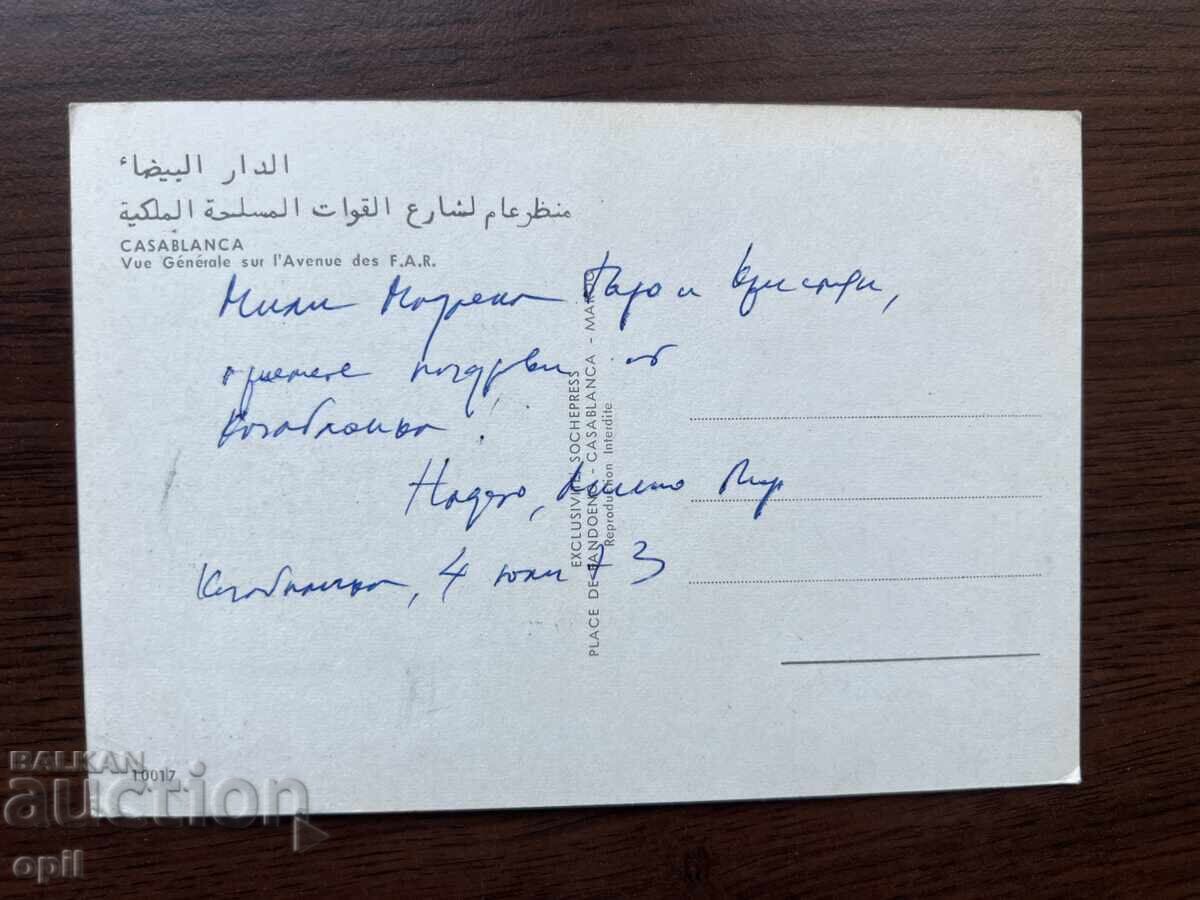 الدار البيضاء
منظر عام لشارع القوات المسلحة الملكية
CASABLANCA
Vue Générale sur l'Avenue des F.A.R.
Мили и
приемете поздрави от
Казабланка!
Казабланка, 4 юли 73
EXCLUSIVITÉ SOCHEPRESS
PLACE DE BANDOENG - CASABLANCA - MAROC
Reproduction Interdite
10017
BALKAN
auction
opil